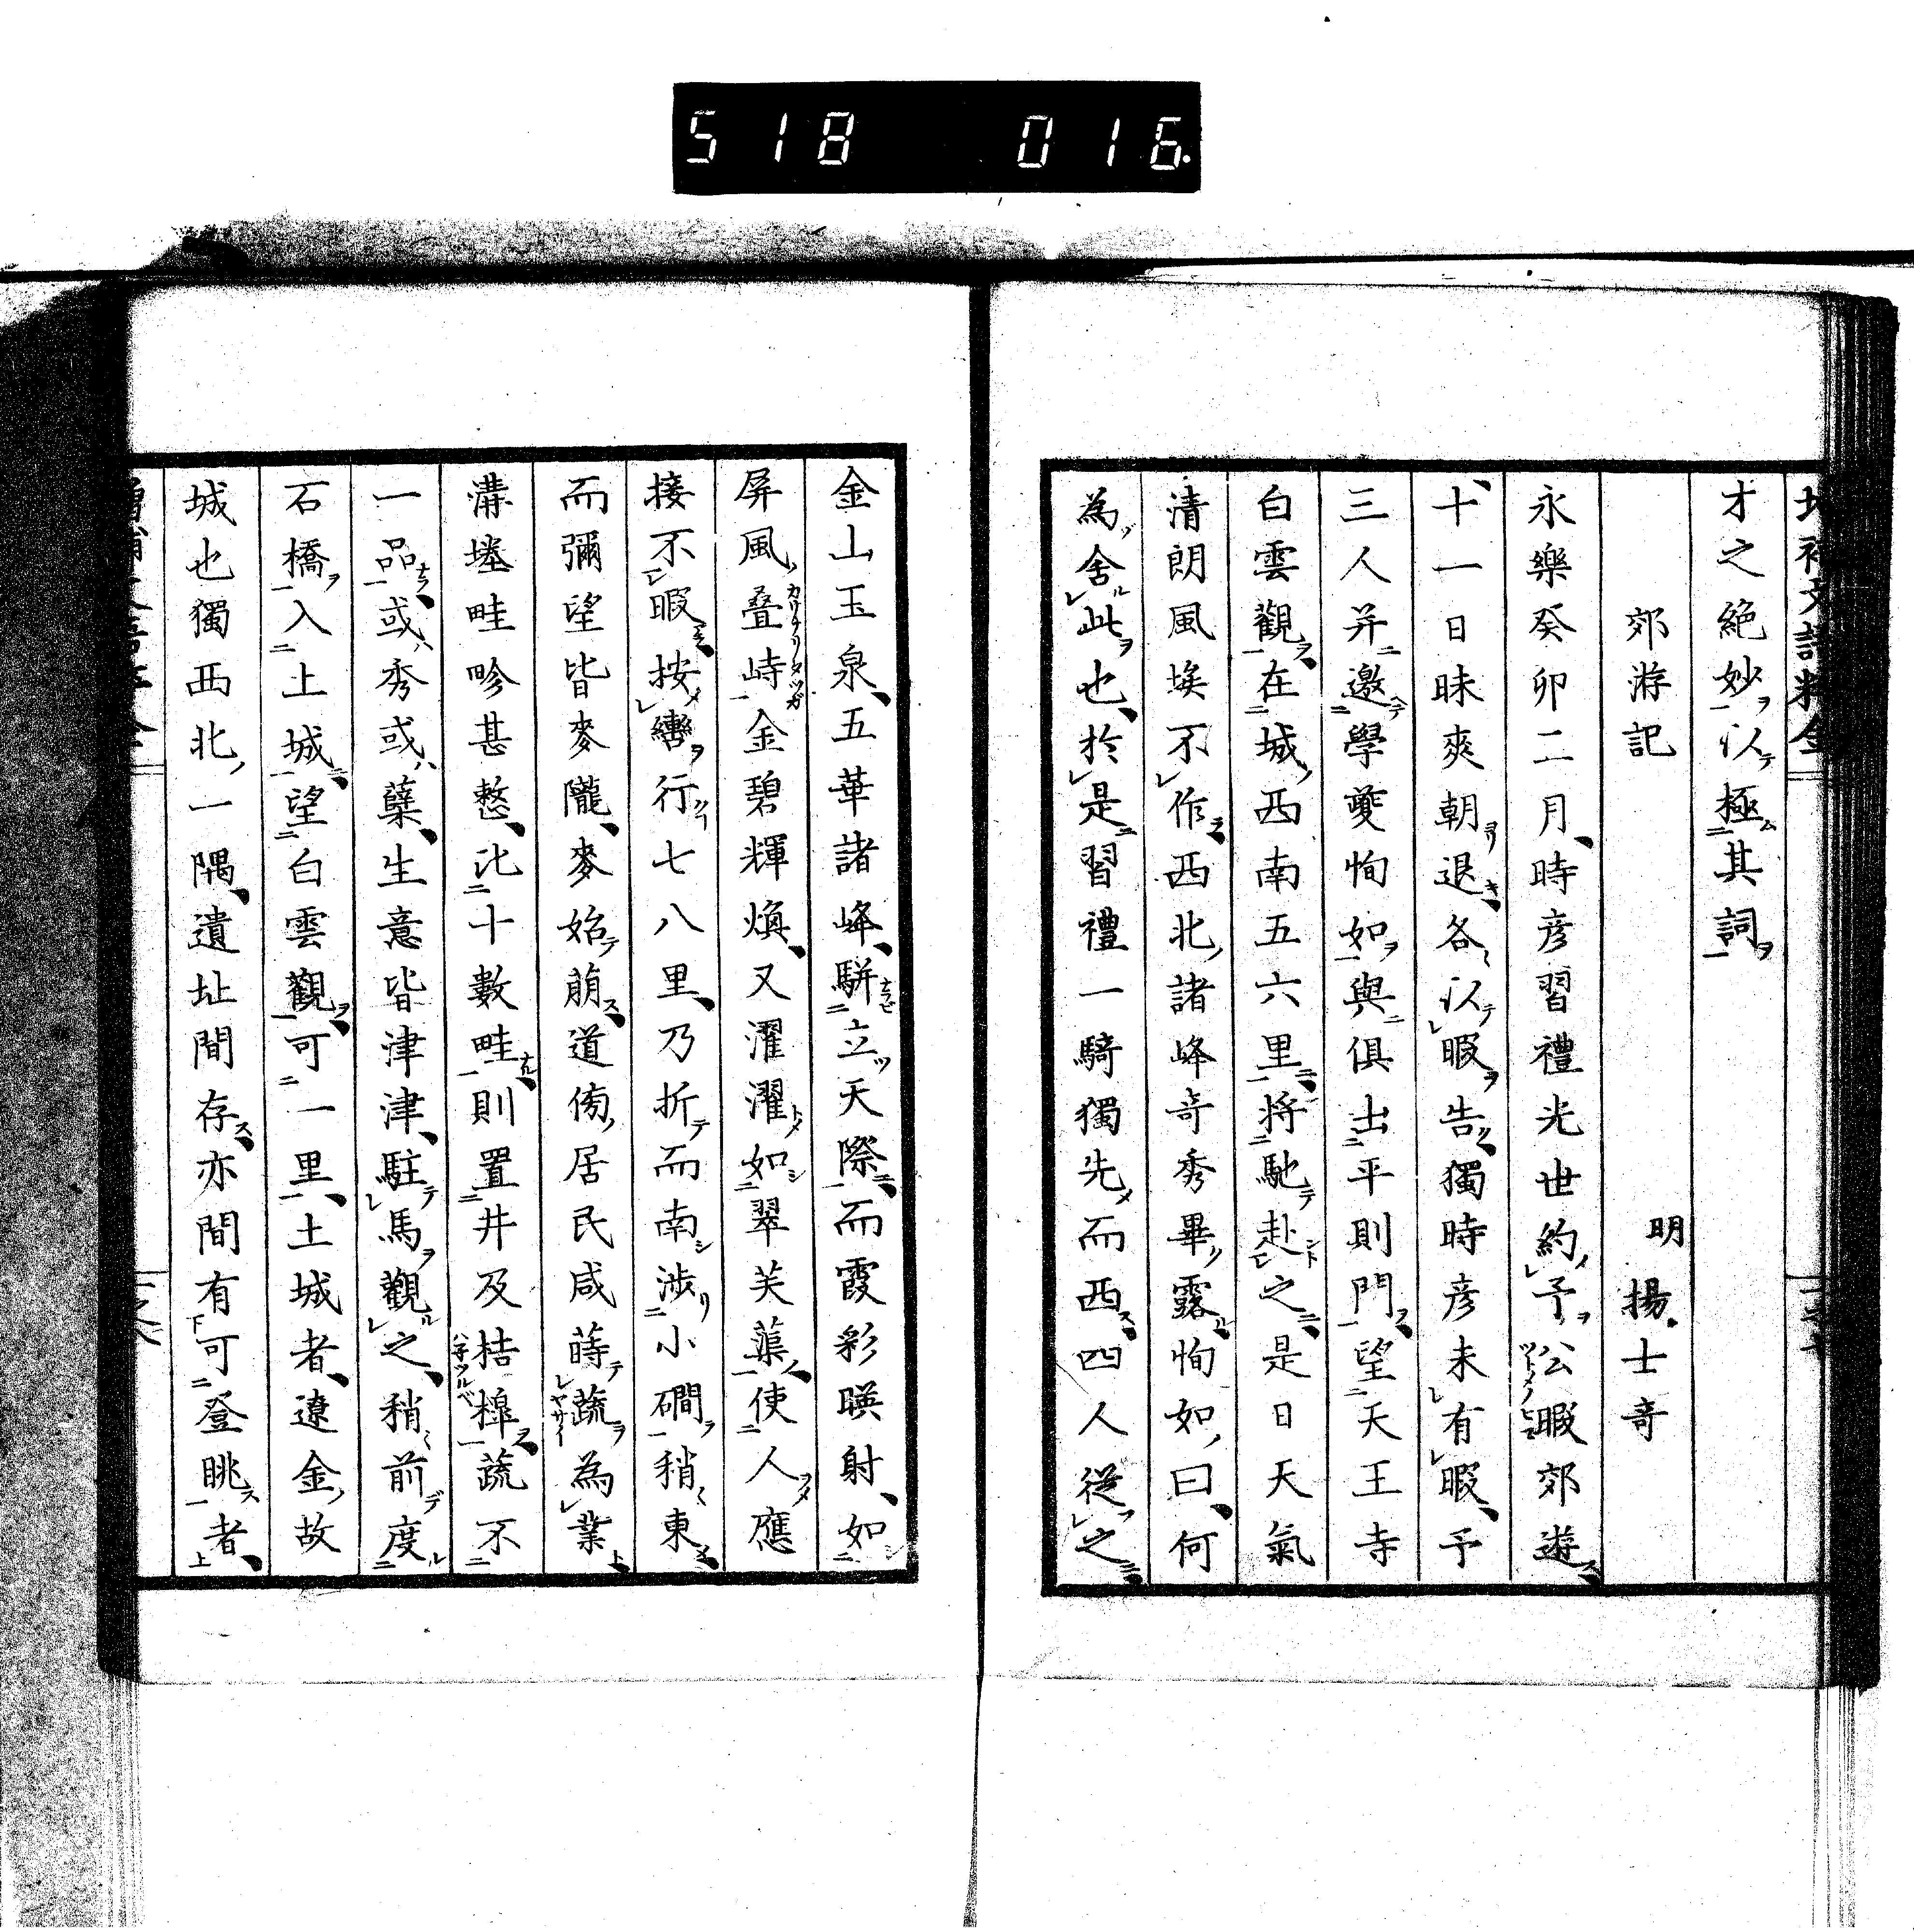 518 016
才之絶妙以極其詞
郊游記
明 揚士奇
永樂癸卯二月時彦習禮光世約予公暇郊遊
十一日昧爽朝退各以暇告獨時彦未有暇予
三人并邀學夔恂如與俱出平則門望天王寺
白雲觀在城西南五六里將馳赴之是日天氣
清朗風埃不作西北諸峰奇秀畢露恂如曰何
為舍此也於是習禮一騎獨先而西四人從之
金山玉泉五華諸峰駢立天際而霞彩暎射如
屏風疊峙金碧輝煥又濯濯如翠芙蕖使人應
接不暇按轡行七八里乃折而南渉小磵稍東
而彌望皆麥隴麥始萠道傍居民咸蒔蔬為業
溝塍畦畛甚整比十數畦則置井及桔槹蔬不
一品或秀或蘖生意皆津津駐馬觀之稍前度
石橋入土城望白雲觀可一里土城者遼金故
城也獨西北一隅遺址間存亦間有可登眺者